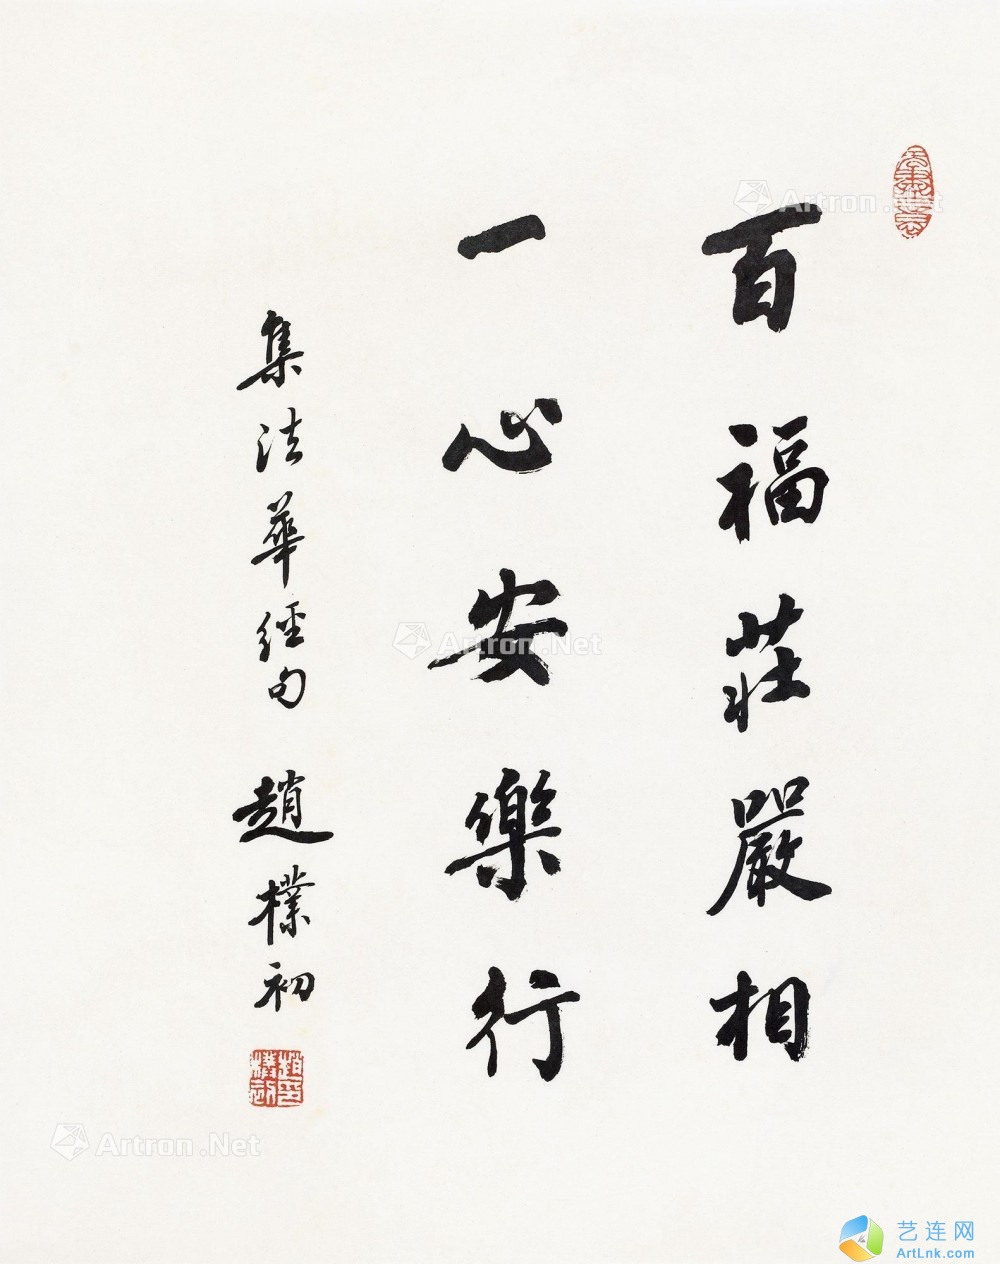 百福莊嚴相
一心安樂行
集法華經句 趙樸初
趙樸初印
Artron.Net
Artron.Net
Artron.Net
艺连网
ArtLnk.com